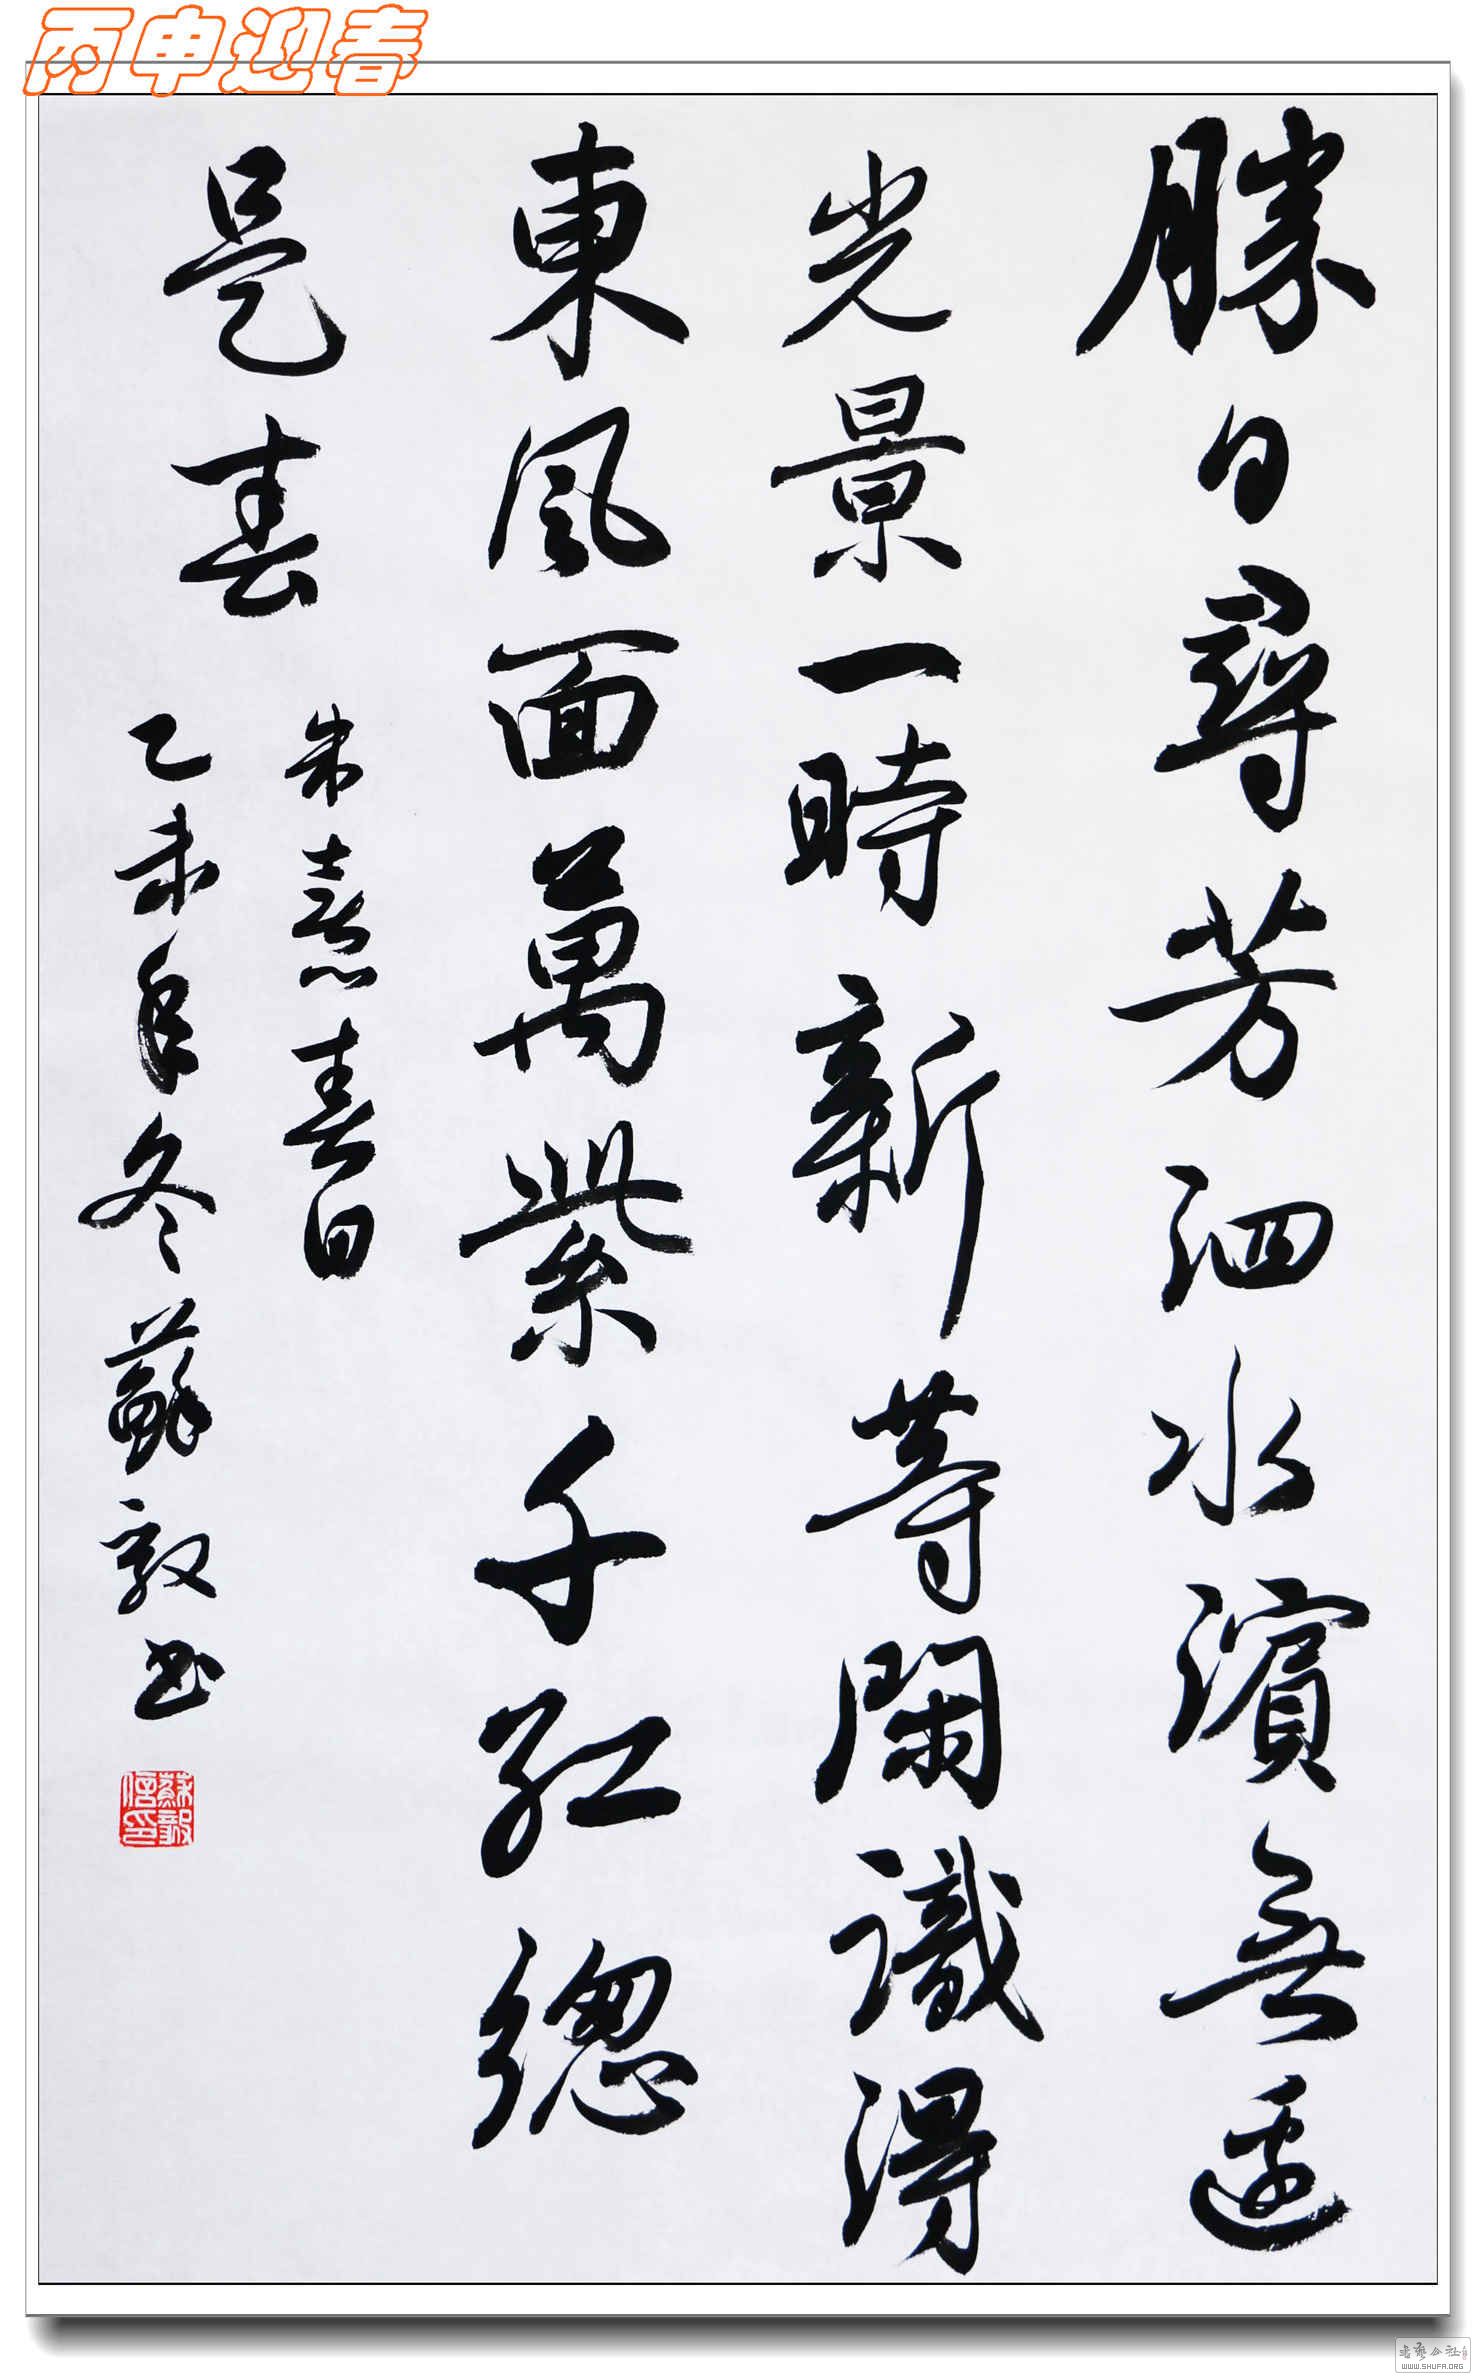 丙申迎春
勝日尋芳泗水濱無邊
光景一時新等閑識得
東風面萬紫千紅總
是春
朱熹春日
乙未年冬蘇毅书
蘇毅信印
书艺公社
WWW.SHUFA.ORG